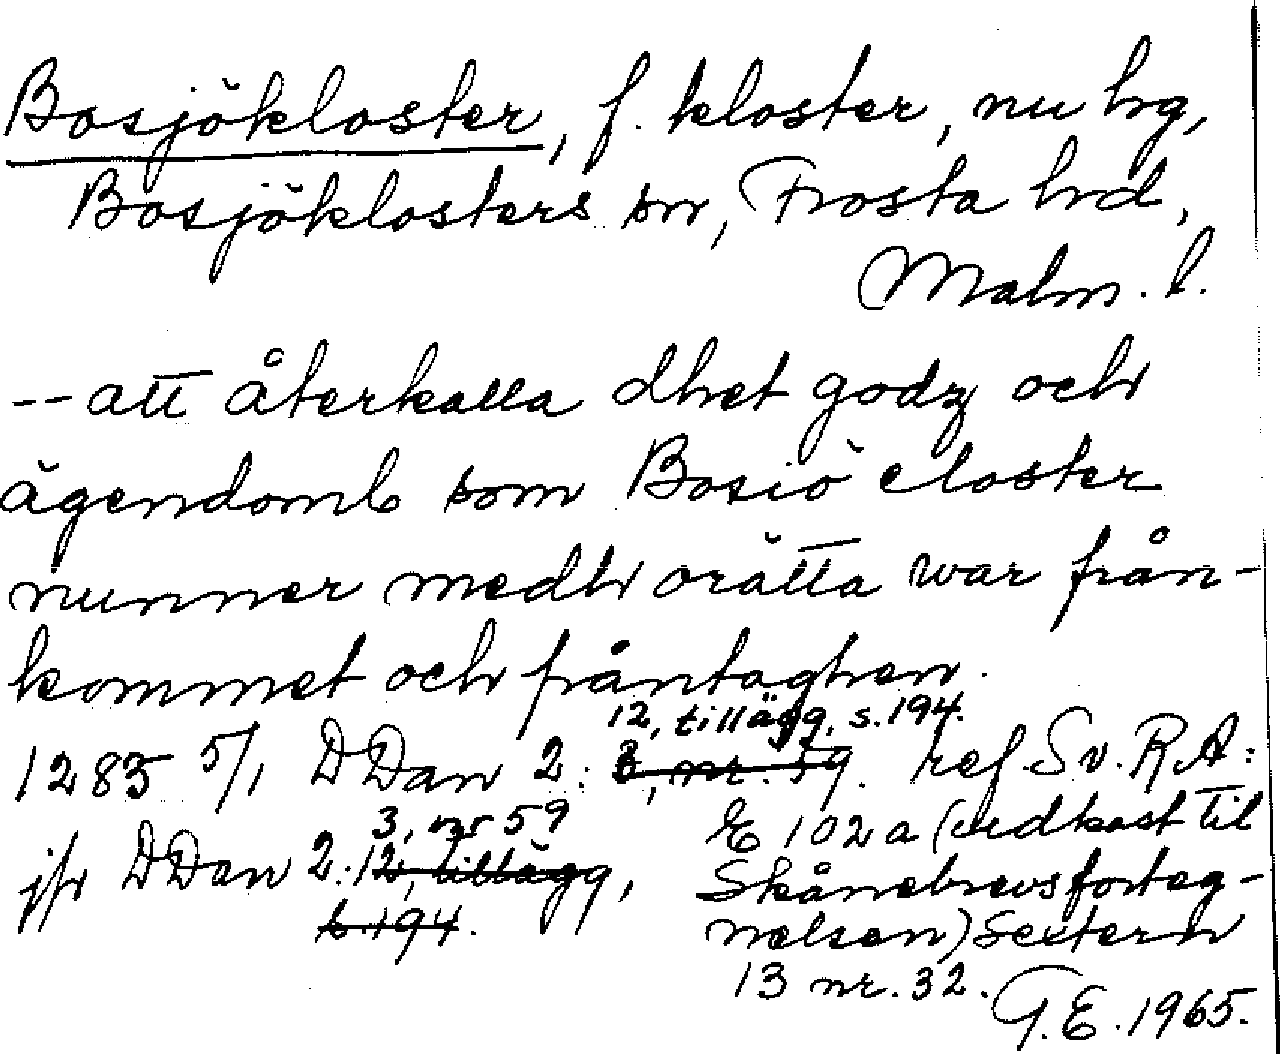 Bosjökloster, f. kloster, nu hg,
Bosjöklosters sn, Frosta hd,
Malm. l.
-- att återkalla dhet godz och
ägendomb som Bosiö closter
nunner medh orätta war från-
kommet och fråntaghen.
12, tillägg, s. 194.
1283 5/1 DDan 2: 3, nr. 59. ref Sv. RA:
3, nr 59
E 102 a (udkast til
jfr DDan 2: 12, tillägg,
Skånebrevsforteg-
s. 194.
nelsen) Sextern
13 nr. 32.
G.E. 1965.